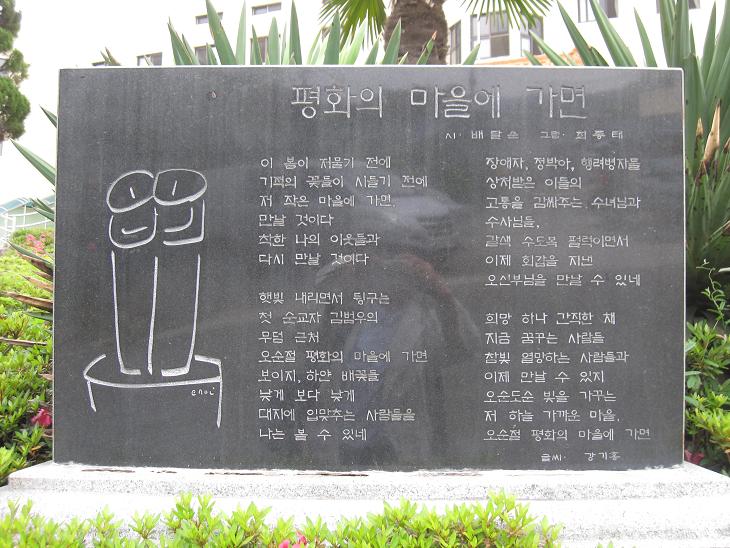 평화의 마을에 가면
시·배달순 그림·최종태
이 봄이 저물기 전에
기쁨의 꽃들이 시들기 전에
저 작은 마을에 가면,
만날 것이다
착한 나의 이웃들과
다시 만날 것이다
햇빛 내리면서 뒹구는
첫 순교자 김범우의
무덤 근처
오순절 평화의 마을에 가면
보이지, 하얀 배꽃들
낮게 보다 낮게
대지에 입맞추는 사람들을
나는 볼 수 있네
장애자, 정박아, 행려병자들
상처받은 이들의
고통을 감싸주는 수녀님과
수사님들,
갈색 수도복 펄럭이면서
이제 회갑을 지낸
오신부님을 만날 수 있네
희망 하나 간직한 채
지금 꿈꾸는 사람들
참빛 열망하는 사람들과
이제 만날 수 있지
오순도순 빛을 가꾸는
저 하늘 가까운 마을,
오순절 평화의 마을에 가면
글씨·강기홍